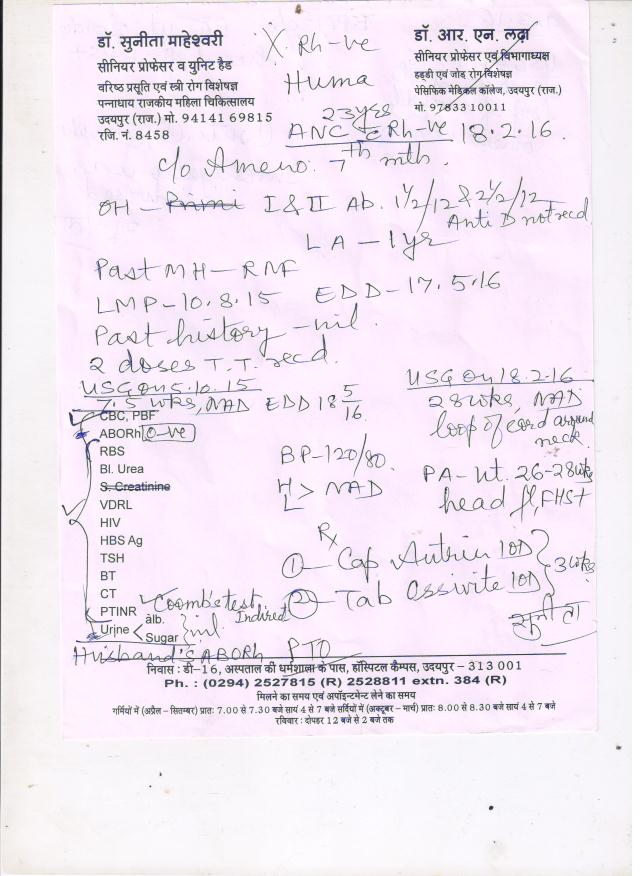 डॉ. सुनीता माहेश्वरी
सीनियर प्रोफेसर व युनिट हैड
वरिष्ठ प्रसूति एवं स्त्री रोग विशेषज्ञ
पन्नाधाय राजकीय महिला चिकित्सालय
उदयपुर (राज.) मो. 94141 69815
रजि. नं. 8458
X Rh-ve
Huma
23 yrs
डॉ. आर. एन. लढ़ा
सीनियर प्रोफेसर एवं विभागाध्यक्ष
हड्डी एवं जोड़ रोग विशेषज्ञ
पेसिफिक मेडिकल कॉलेज, उदयपुर (राज.)
मो. 97833 10011
ANC c Rh-ve 18.2.16.
c/o Ameno. 7th mth.
OH - Primi I & II Ab. 1½/12 & 2½/12
Anti D not recd.
LA - 1 yr
Past MH - RNF
LMP - 10.8.15 EDD - 17.5.16
Past history - nil.
2 doses T.T. recd.
USG on 5.10.15
7.5 wks, NAD EDD 18 5/16
USG on 18.2.16
28 wks, NAD
loop of cord around neck.
CBC, PBF
ABORh O-ve
RBS
Bl. Urea
S. Creatinine
VDRL
HIV
HBS Ag
TSH
BT
CT
PTINR
Coomb's test Indirect
Urine < alb. Sugar } nil
Husband's ABORh PTO
BP - 120/80.
H L > NAD
PA - Ut. 26-28 wks
head fl, FHS+
Rx
1 - Cap Autrin 1OD
2 - Tab Ossivite 1OD } 3 wks
सुनीता
निवास : डी-16, अस्पताल की धर्मशाला के पास, हॉस्पिटल कैम्पस, उदयपुर - 313 001
Ph. : (0294) 2527815 (R) 2528811 extn. 384 (R)
मिलने का समय एवं अपॉइन्टमेन्ट लेने का समय
गर्मियों में (अप्रैल - सितम्बर) प्रातः 7.00 से 7.30 बजे सायं 4 से 7 बजे सर्दियों में (अक्टूबर - मार्च) प्रातः 8.00 से 8.30 बजे सायं 4 से 7 बजे
रविवार : दोपहर 12 बजे से 2 बजे तक